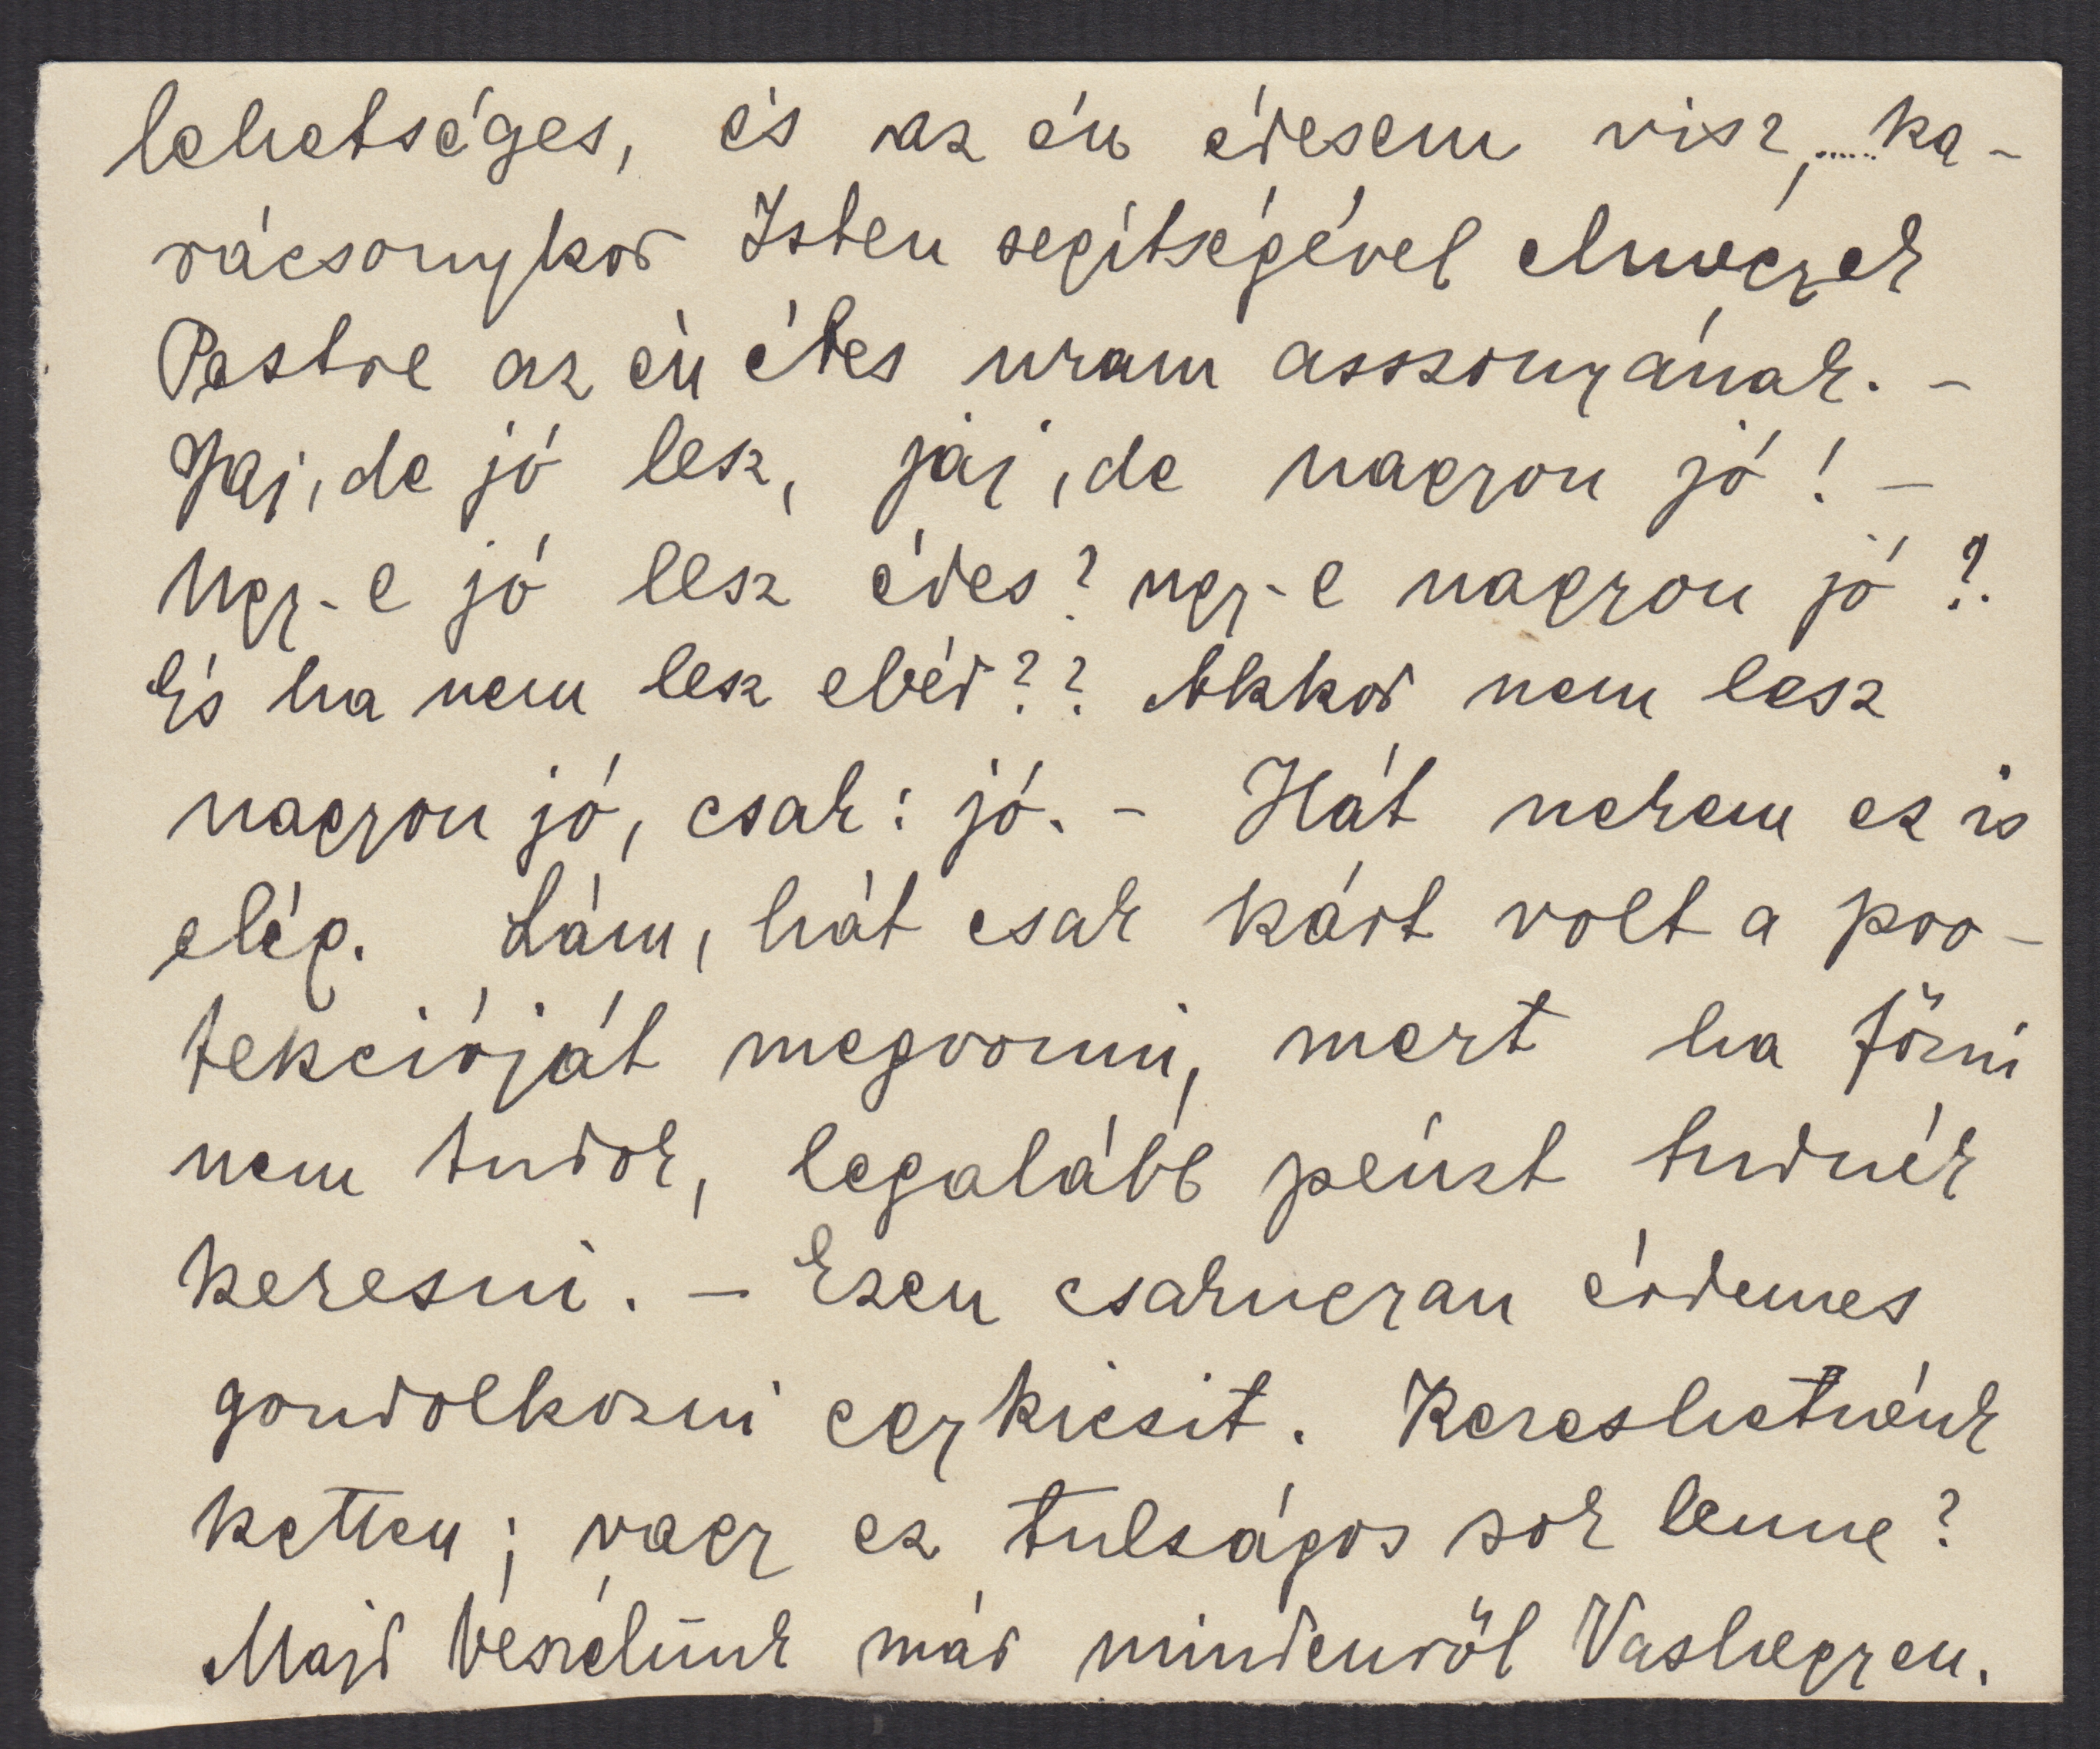 lehetséges, és az én édesem visz,..... ka-
rácsonykor Isten segítségével elmegyek
Pestre az én édes uram asszonyának. -
Jaj, de jó lesz, jaj, de nagyon jó! -
Ugy-e jó lesz édes? ugy-e nagyon jó?
És ha nem lesz ebéd?? Akkor nem lesz
nagyon jó, csak: jó. - Hát nekem ez is
elég. Lám, hát csak kárt volt a pro-
tekcióját megvonni, mert ha főzni
nem tudok, legalább pénzt tudnék
keresni. - Ezen csakugyan érdemes
gondolkozni egy kicsit. Kereshetnénk
ketten; vagy ez tulságos sok lenne?
Majd beszélünk már mindenről Vashegyen.